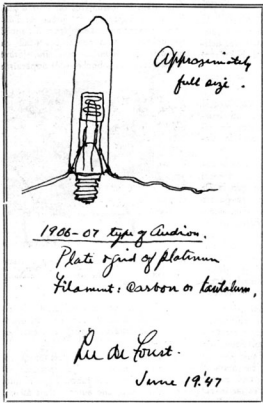 Approximately
full size.
1906-07 type of Audion.
Plate & grid of platinum
Filament: Carbon or tantalum.
Lee de Forest.
June 19.'47